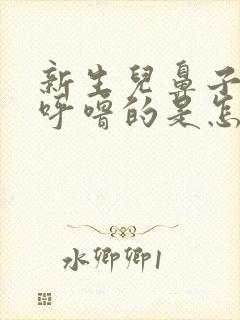 新生兒鼻子
呼嚕的是怎
水卿卿1